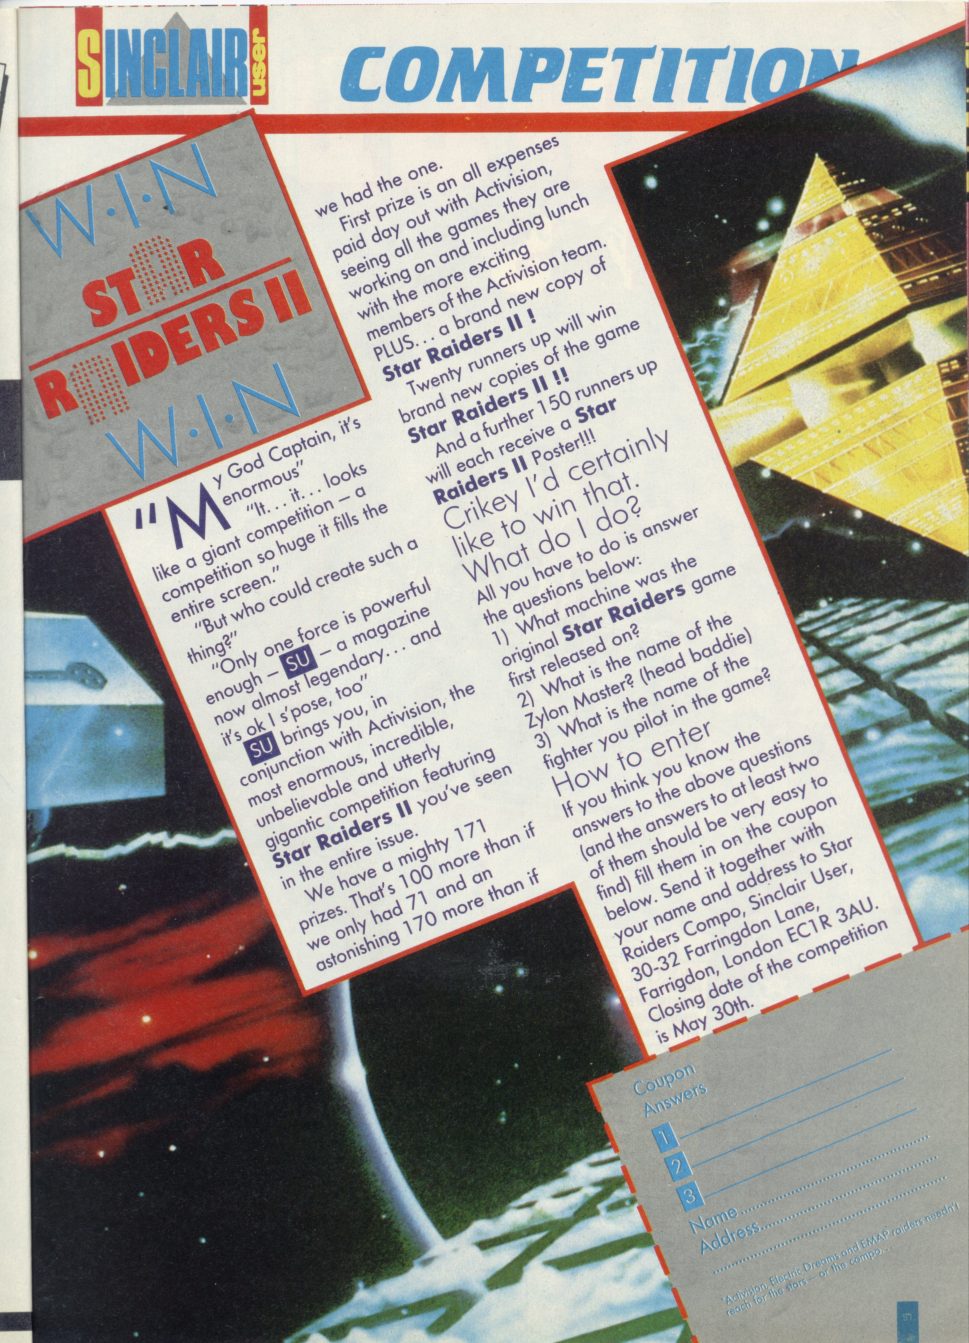 SINCLAIR user
COMPETITION
W·I·N
STAR
RAIDERS II
W·I·N
"My God Captain, it's
enormous"
"It. . .it. . . looks
like a giant competition – a
competition so huge it fills the
entire screen."
"But who could create such a
thing?"
"Only one force is powerful
enough – SU – a magazine
now almost legendary. . . and
it's ok I s'pose, too"
SU brings you, in
conjunction with Activision, the
most enormous, incredible,
unbelievable and utterly
gigantic competition featuring
Star Raiders II you've seen
in the entire issue.
We have a mighty 171
prizes. That's 100 more than if
we only had 71 and an
astonishing 170 more than if
we had the one.
First prize is an all expenses
paid day out with Activision,
seeing all the games they are
working on and including lunch
with the more exciting
members of the Activision team.
PLUS. . . a brand new copy of
Star Raiders II !
Twenty runners up will win
brand new copies of the game
Star Raiders II !!
And a further 150 runners up
will each receive a Star
Raiders II Poster!!!
Crikey I'd certainly
like to win that.
What do I do?
All you have to do is answer
the questions below:
1) What machine was the
original Star Raiders game
first released on?
2) What is the name of the
Zylon Master? (head baddie)
3) What is the name of the
fighter you pilot in the game?
How to enter
If you think you know the
answers to the above questions
(and the answers to at least two
of them should be very easy to
find) fill them in on the coupon
below. Send it together with
your name and address to Star
Raiders Compo, Sinclair User,
30-32 Farringdon Lane,
Farrigdon, London EC1R 3AU.
Closing date of the competition
is May 30th.
Coupon
Answers
1
2
3
Name
Address
*Activision, Electric Dreams and EMAP raiders needn't
reach for the stars – or the compo. . .